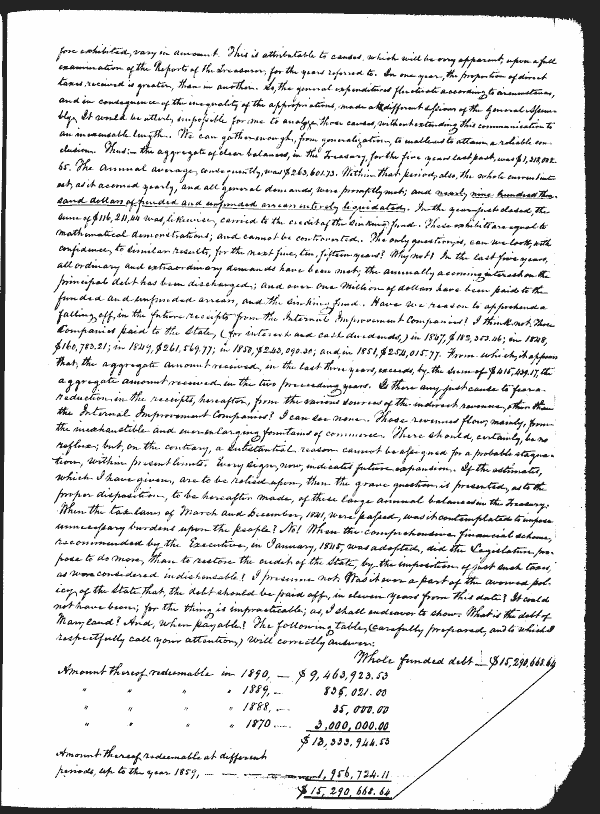 fore exhibited, vary in amount. This is attributable to causes, which will be very apparent, upon a full
examination of the Reports of the Treasurer, for the years referred to. In one year, the proportion of direct
taxes, received is greater, than in another. So, the general expenditures fluctuate according to circumstances,
and in consequence of the inequality of the appropriations, made at different sessions of the General Assem-
bly. It would be utterly, impossible for me to analyze those causes, without extending this communication to
an inexcusable length. We can gather enough, from generalization, to enable us to attain a reliable con-
clusion. Thus:— the aggregate of clear balances, in the Treasury, for the five years last past, was
65. The annual average, consequently, was $263,601.73. Within that period, also, the whole current inter-
est, as it accrued yearly, and all general demands, were promptly met; and nearly nine hundred thou-
sand dollars of funded and unfunded arrears entirely liquidated. In the year just closed, the
sum of $116,211.44 was, likewise, carried to the credit of the sinking fund. These exhibits are equal to
mathematical demonstrations; and cannot be controverted. The only question, is, can we look, with
confidence, to similar results, for the next five, ten, fifteen years? Why not? In the last five years,
all ordinary and extraordinary demands have been met; the annually accruing interest on the
principal debt has been discharged; and over one million of dollars have been paid to the
funded and unfunded arrears, and the sinking fund. Have we reason to apprehend a
falling off, in the future receipts from the Internal Improvement Companies? I think not. Those
Companies paid to the State, (for interest and cash dividends,) in 1847, $182,353.46; in 1848,
$160,783.21; in 1849, $261,569.77; in 1850, $243,090.30; and in 1851, $254,015.77. From which, it appears
that, the aggregate amount received, in the last three years, exceeds, by the sum of $415,539.17, the
aggregate amount received in the two preceding years. Is there any, just cause to fear a
reduction in the receipts, hereafter, from the various sources of the indirect revenue, other than
the Internal Improvement Companies? I can see none. Those revenues flow, mainly, from
the inexhaustible and ever enlarging fountains of commerce. There should, certainly, be no
reflux; but, on the contrary, a substantial reason cannot be assigned for a probable stagna-
tion, within present limits. Every sign, now, indicates future expansion. If the estimates,
which I have given, are to be relied upon, then the grave question is presented, as to the
proper disposition, to be hereafter made, of these large annual balances in the Treasury.
When the tax laws of March and December, 1841, were passed, was it contemplated to impose
unnecessary burdens upon the people? No! When the comprehensive financial scheme,
recommended by the Executive, in January, 1845, was adopted, did the Legislature pro-
pose to do more, than to restore the credit of the State, by the imposition of just such taxes,
as were considered indispensable? I presume not. Was it ever a part of the avowed pol-
icy, of the State, that, the debt should be paid off, in eleven years from this date? It could
not have been; for the thing is impracticable; as, I shall endeavor to show. What is the debt of
Maryland? And, when payable? The following table, (carefully prepared, and to which I
respectfully call your attention,) will correctly answer:
Whole funded debt — $15,290,668.64
Amount thereof redeemable in 1890, — $9,463,923.53
" " " " 1889, — 835,021.00
" " " " 1888, — 35,000.00
" " " " 1870 — 3,000,000.00
$13,333,944.53
Amount thereof redeemable at different
periods, up to the year 1859, — 1,956,724.11
$15,290,668.64